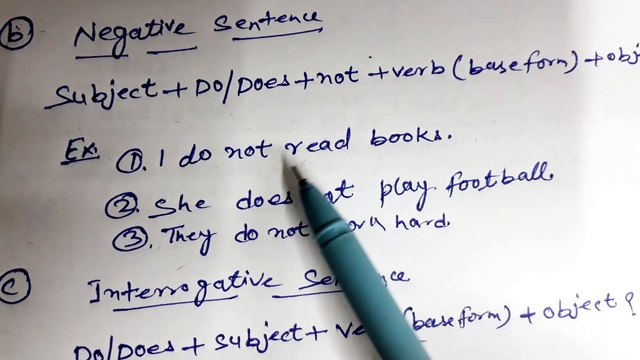 (b) Negative Sentence
Subject + Do/Does + not + verb (base form) + obj
Ex. (1). I do not read books.
(2). She does not play football.
(3). They do not work hard.
(c) Interrogative Sentence
Do/Does + subject + verb (base form) + object?